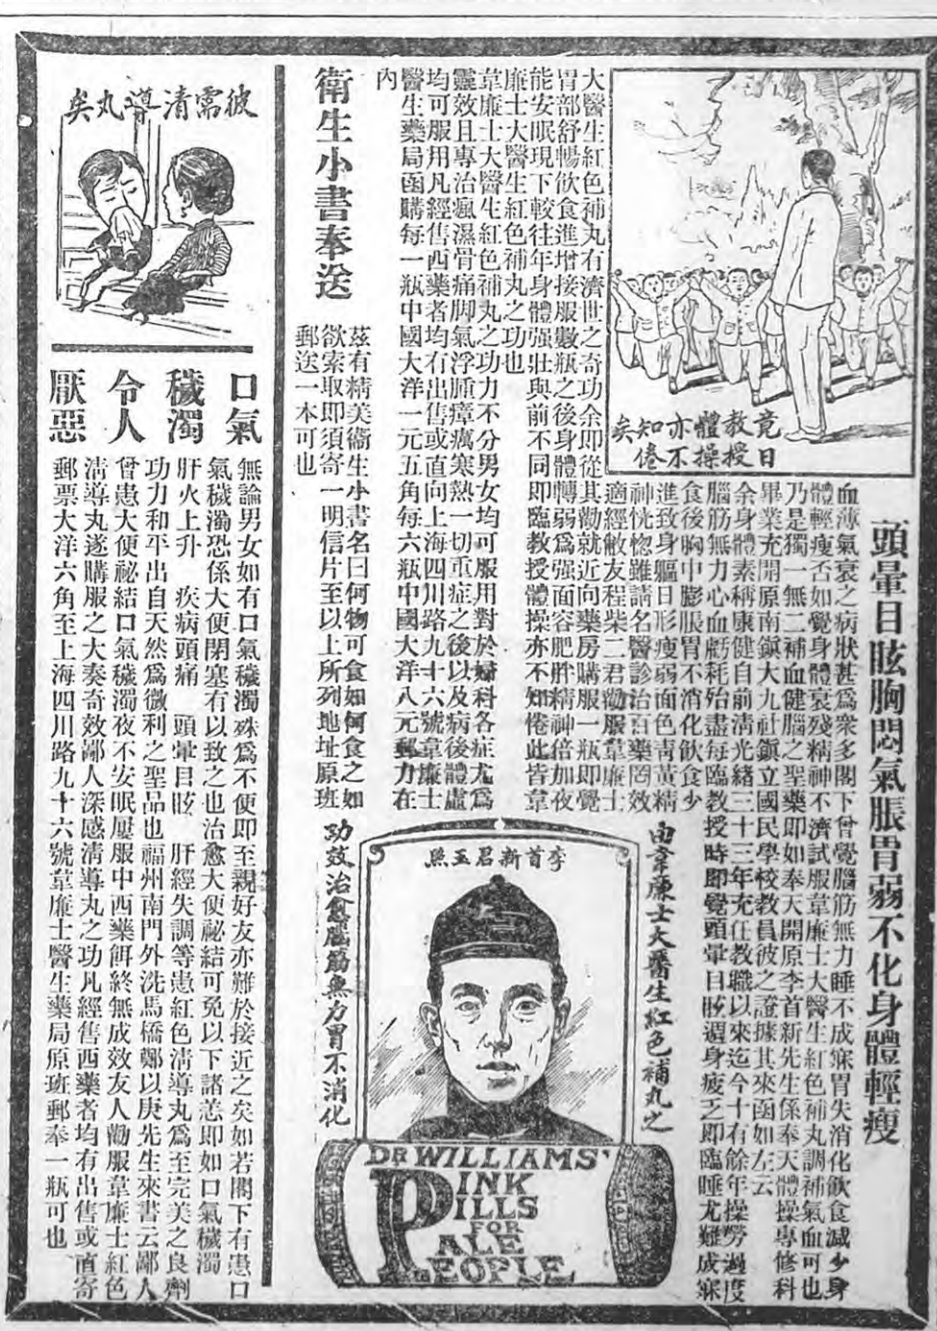 頭暈目眩胸悶氣脹胃弱不化身體輕瘦
血薄氣衰之病狀甚爲衆多閣下曾覺腦筋無力睡不成寐胃失消化飲食減少身
體輕瘦否如覺身體衰殘精神不濟試服韋廉士大醫生紅色補丸調補氣血可也
乃是獨一無二補血健腦之聖藥即如奉天開原李首新先生係奉天體操專修科
畢業充開原南鎭大九社鎭立國民學校教員彼之證據其來函如左云
余身體素稱康健自前淸光緒三十三年充任教職以來迄今十有餘年操勞過度
腦筋無力心血虧耗殆盡每臨教授時即覺頭暈目眩週身疲乏即臨睡尤難成寐
食後胸中膨脹胃不消化飲食少
進致身軀日形瘦弱面色靑黃精
神恍惚雖請名醫診治百藥罔效
適經敝友程柴二君勸服韋廉士
大醫生紅色補丸有濟世之奇功余即從其勸就近向藥房購服一瓶即覺
胃部舒暢飲食進增接服數瓶之後身體轉弱爲强面容肥胖精神倍加夜
能安眠現下較往年身體强壯與前不同即臨教授體操亦不知倦此皆韋
廉士大醫生紅色補丸之功也
韋廉士大醫生紅色補丸之功力不分男女均可服用對於婦科各症尤爲
靈效且專治瘋濕骨痛脚氣浮腫瘴癘寒熱一切重症之後以及病後體虛
均可服用凡經售西藥者均有出售或直向上海四川路九十六號韋廉士
醫生藥局函購每一瓶中國大洋一元五角每六瓶中國大洋八元郵力在
內
竟教體亦知矣
日授操不倦
李首新君玉照
由韋廉士大醫生紅色補丸之
功效治愈腦筋無力胃不消化
DR WILLIAMS'
PINK
PILLS
FOR
PALE
PEOPLE
衛生小書奉送
茲有精美衛生小書名曰何物可食如何食之如
欲索取即須寄一明信片至以上所列地址原班
郵送一本可也
彼需清導丸矣
口氣
穢濁
令人
厭惡
無論男女如有口氣穢濁殊爲不便即至親好友亦難於接近之矣如若閣下有患口
氣穢濁恐係大便閉塞有以致之也治愈大便祕結可免以下諸恙即如口氣穢濁
肝火上升 疾病頭痛 頭暈目眩 肝經失調等患紅色淸導丸爲至完美之良劑
功力和平出自天然爲微利之聖品也福州南門外洗馬橋鄭以庚先生來書云鄙人
曾患大便祕結口氣穢濁夜不安眠屢服中西藥餌終無成效友人勸服韋廉士紅色
淸導丸遂購服之大奏奇效鄙人深感淸導丸之功凡經售西藥者均有出售或直寄
郵票大洋六角至上海四川路九十六號韋廉士醫生藥局原班郵奉一瓶可也